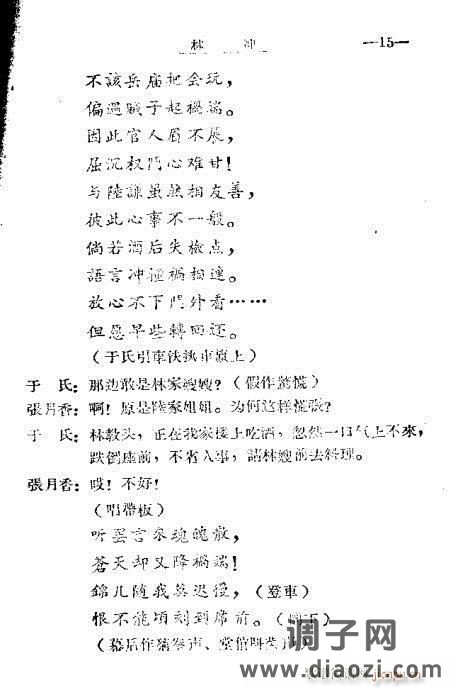 林 冲 —15—
不該岳庙把会玩，
偏遇贼子起禍端。
因此官人眉不展，
屈沉权門心难甘！
与陸謙虽然相友善，
彼此心事不一般。
倘若酒后失檢点，
語言冲撞禍相連。
放心不下門外看……
但愿早些轉回还。
（于氏引車伕执車旗上）
于 氏：那边敢是林家嫂嫂？（假作驚慌）
張月香：啊！原是陸家姐姐。为何这样慌張？
于 氏：林教头，正在我家楼上吃酒，忽然一口气上不來，
跌倒座前，不省人事，請林嫂前去料理。
張月香：哎！不好！
（唱帶板）
听罢言來魂魄散，
蒼天却又降禍端！
錦儿随我莫迟慢，（登車）
恨不能頃刻到席前。（同下）
（幕后作猜拳声、堂倌
调子网
www.diaozi.com